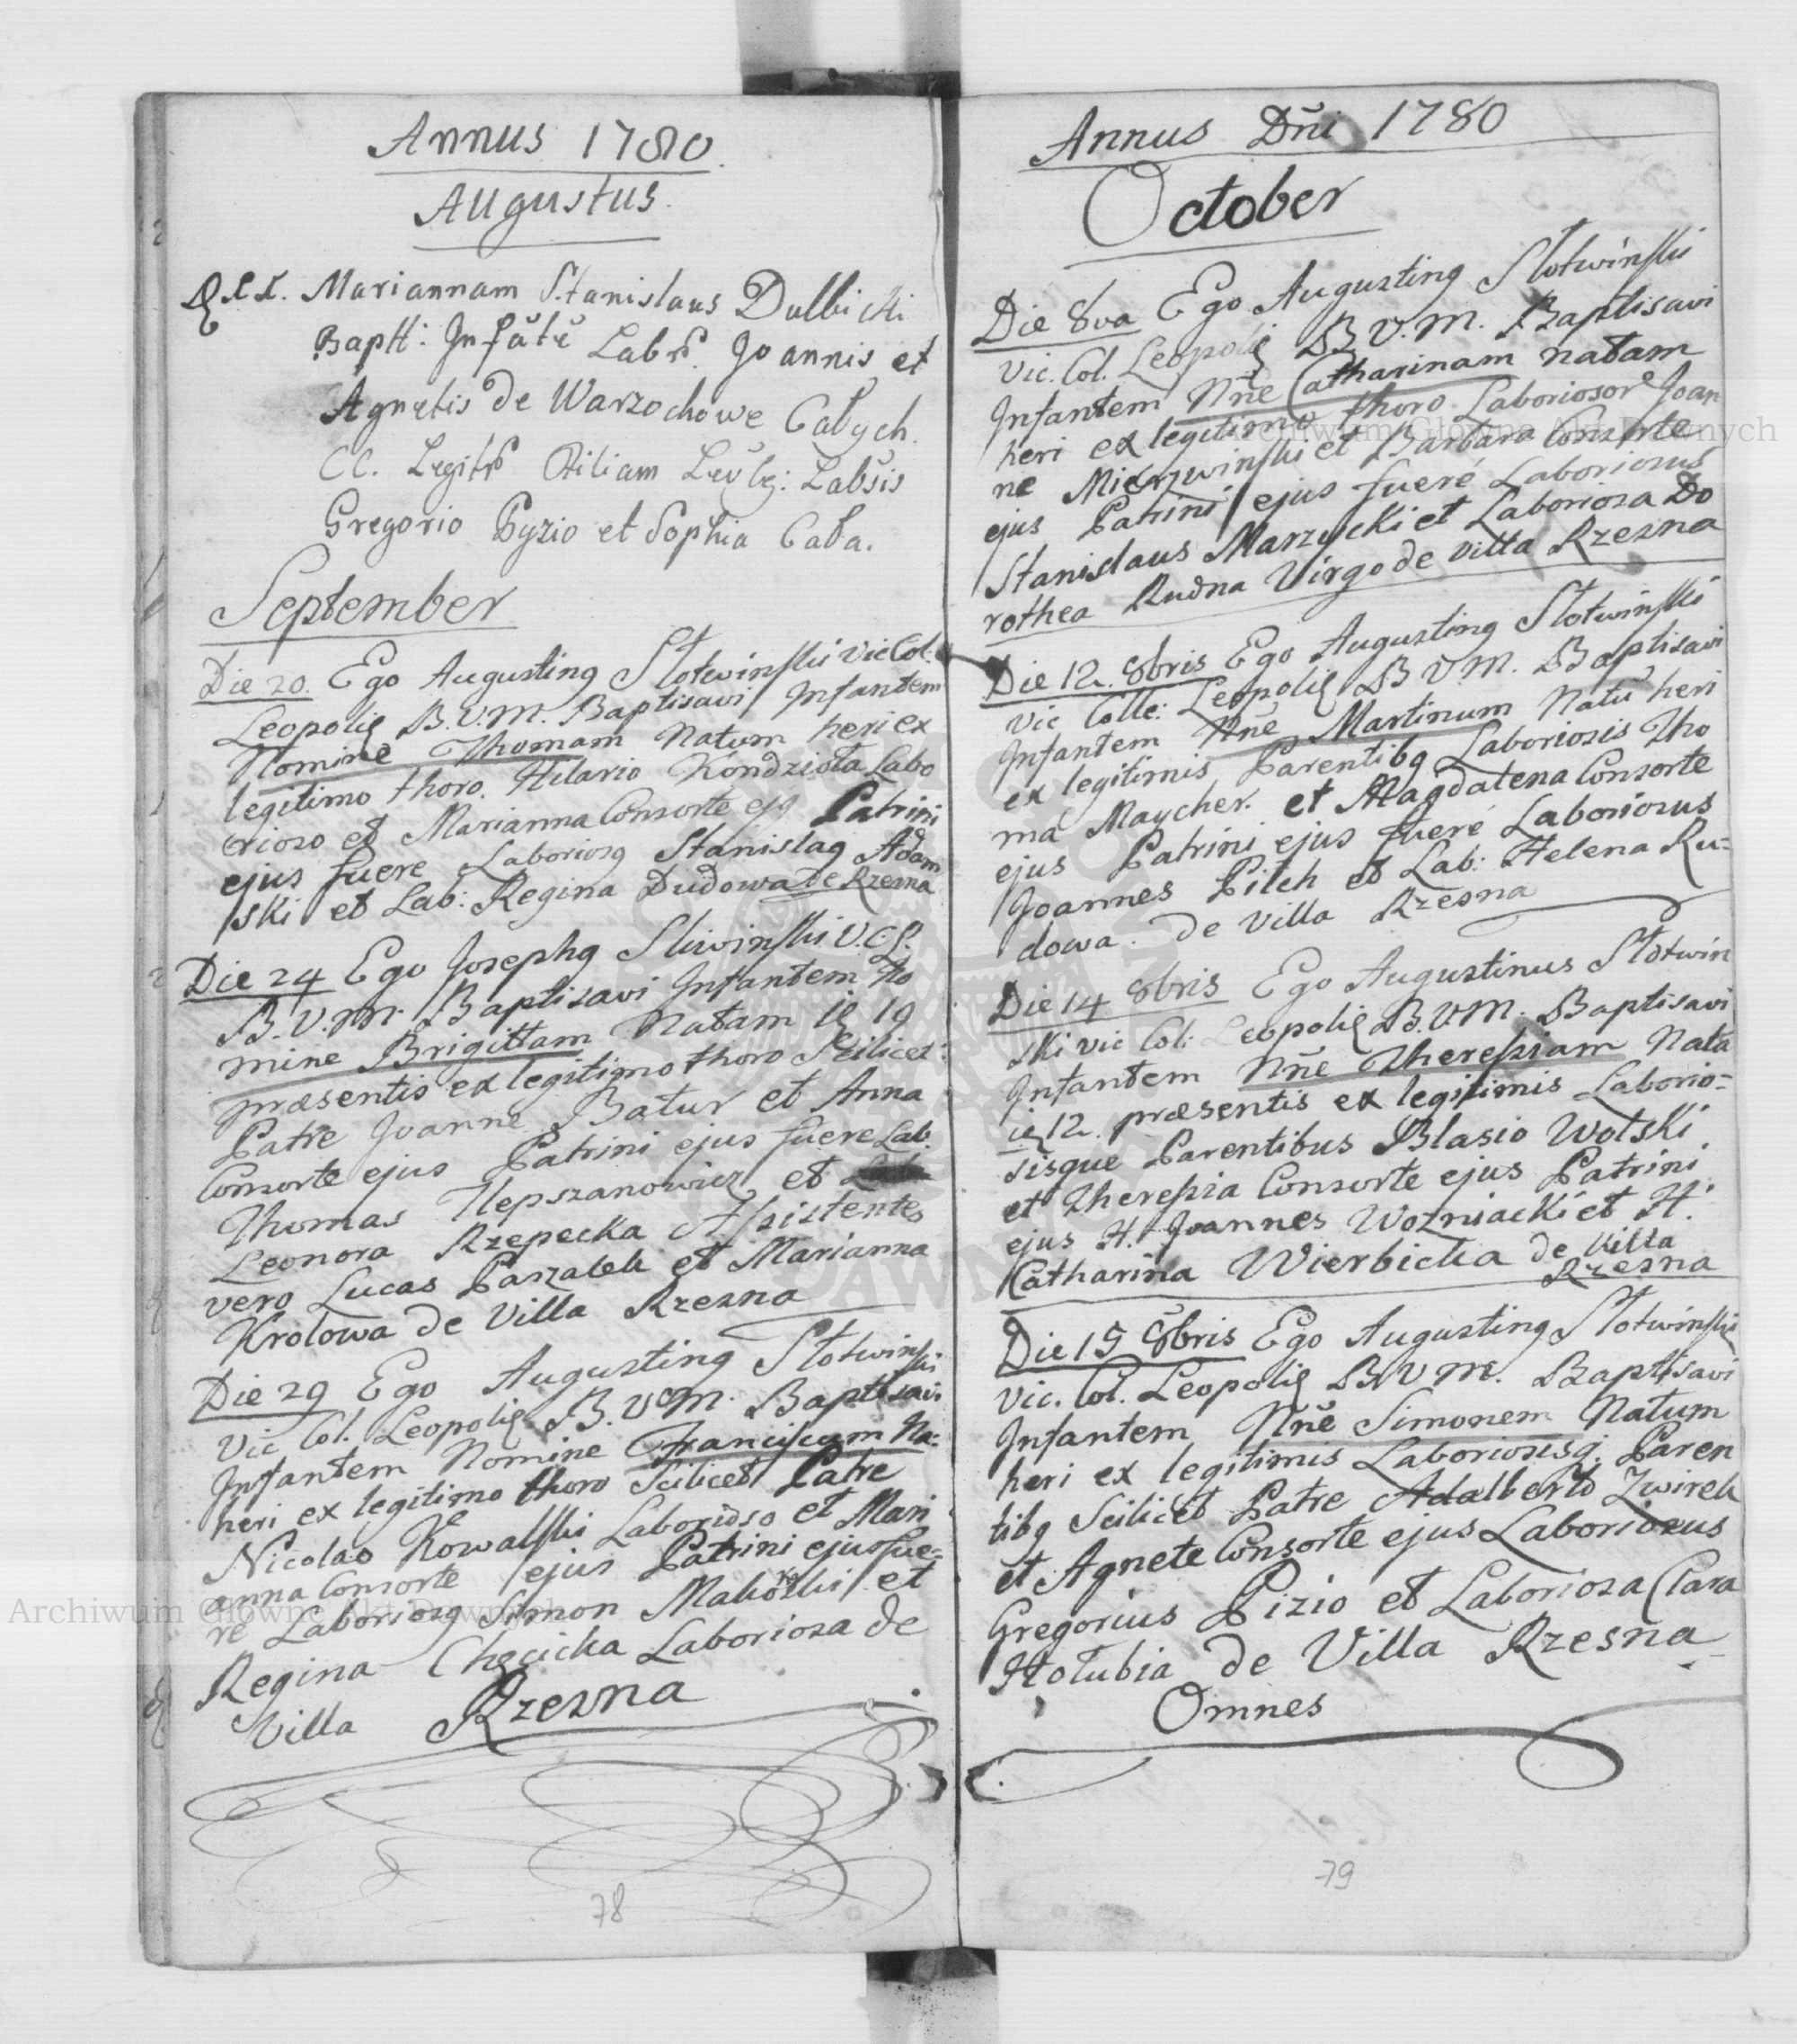 Annus 1780.
Augustus.
Mariannam Stanislaus Dulbicki
Baptt: Infātē Labr̃. Joannis et
Agnetis de Warzochowe Cabych.
CC. Legitr̃ Filiam Levtg: Labsis
Gregorio Pyzio et Sophia Caba.
September
Die 20. Ego Augusting Słotwinski Vic Col:
Leopolię B.V.M. Baptisavi Infantem
Nomine Thomam Natum heri ex
legitimo thoro. Hilario Kondziota Labo
rioso et Marianna Consorte ejg Patrini
ejus fuere Laboriosg Stanislag Adam
ski et Lab: Regina Dudowa de Rzesna
Die 24 Ego Josephg Sliwinski V.C.L.
B.V.M. Baptisavi Infantem No
mine Brigittam Natam ię 19
præsentis ex legitimo thoro Scilicet
Patre Joanne Batur et Anna
Consorte ejus Patrini ejus fuere Lab.
Thomas Tlepszanowicz et
Leonora Rzepecka Assistentes
vero Lucas Paszalek et Marianna
Krolowa de Villa Rzesna
Die 29 Ego Augusting Słotwinski
Vic Col. Leopolię B.V.M. Baptisavi
Infantem Nomine Franciscum Na:
heri ex legitimo thoro Scilicet Patre
Nicolao Kowalski Laborioso et Mari
anna Consorte ejus Patrini ejus fue=
re Laboriosg Simon Makorski et
Regina Chęcicka Laboriosa de
Villa Rzesna
78
Annus Dñi 1780
October
Die 8va Ego Augusting Słotwinski
Vic. Col. Leopolię B.V.M. Baptisavi
Infantem Nñe Catharinam natam
heri ex legitimo thoro Laboriosorº Joan
ne Mierzwinski et Barbara Consorte
ejus Patrini ejus fueré Laboriosus
Stanislaus Marzycki et Laboriosa Do
rothea Rudna Virgo de villa Rzesna
Die 12. 8bris Ego Augusting Słotwinski
Vic Colle: Leopolię B V.M. Baptisavi
Infantem Nñe Martinum Natū heri
ex legitimis Parentibg Laboriosis Tho
ma Maycher. et Magdalena Consorte
ejus Patrini ejus fueré Laboriosus
Joannes Pilch et Lab: Helena Ru=
dowa. de Villa Rzesna
Die 14 8bris Ego Augustinus Słotwin
ski vic Col: Leopolię B.V.M. Baptisavi
Infantem Nñe Theresiam Nata
ię 12. præsentis ex legitimis Laborio=
sisque Parentibus Blasio Wolski
et Theresia Consorte ejus Patrini
ejus H. Joannes Wozniacki et H.
Catharina Wierbicka de Villa
Rzesna
Die 15 8bris Ego Augusting Słotwinski
Vic. Col. Leopolię B V M. Baptisavi
Infantem Nñe Simonem Natum
heri ex legitimis Laboriosisq. Paren
tibg Scilicet Patre Adalberto Zwirek
et Agnete Consorte ejus Laboriosus
Gregorius Pizio et Laboriosa Clara
Hołubia de Villa Rzesna
Omnes
79
Archiwum Główne Akt Dawnych
Archiwum Główne Akt Dawnych